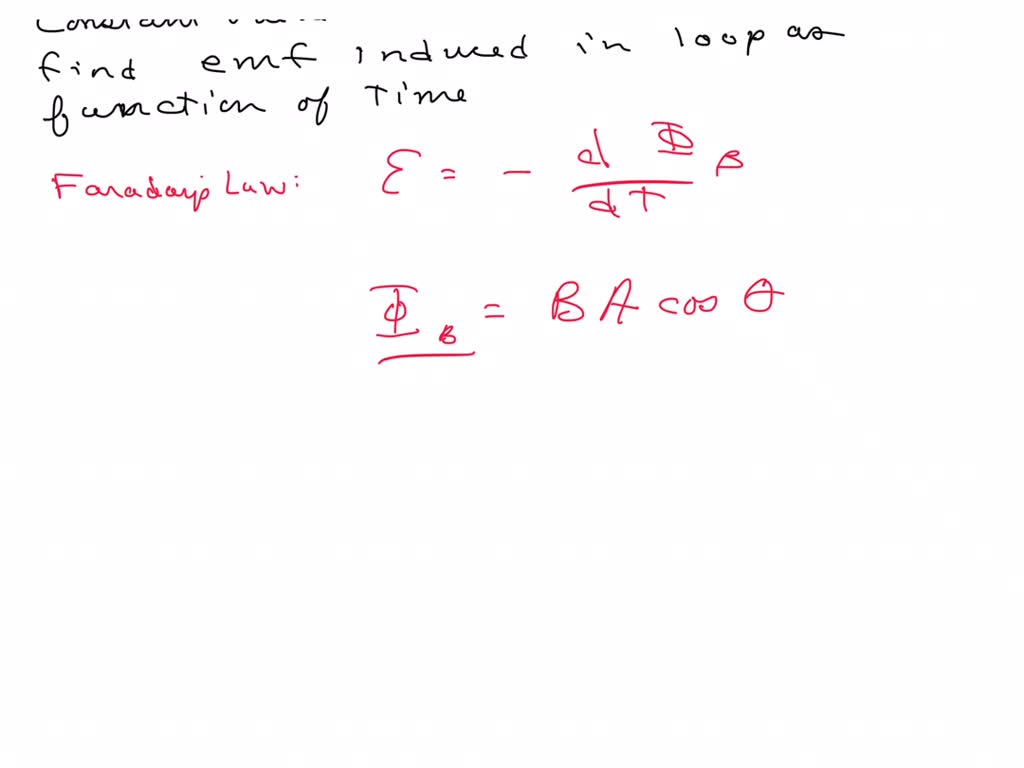 find emf induced in loop as
function of Time
Faraday's Law: ℰ = - d Φ_B / dT
Φ_B = B A cos θ